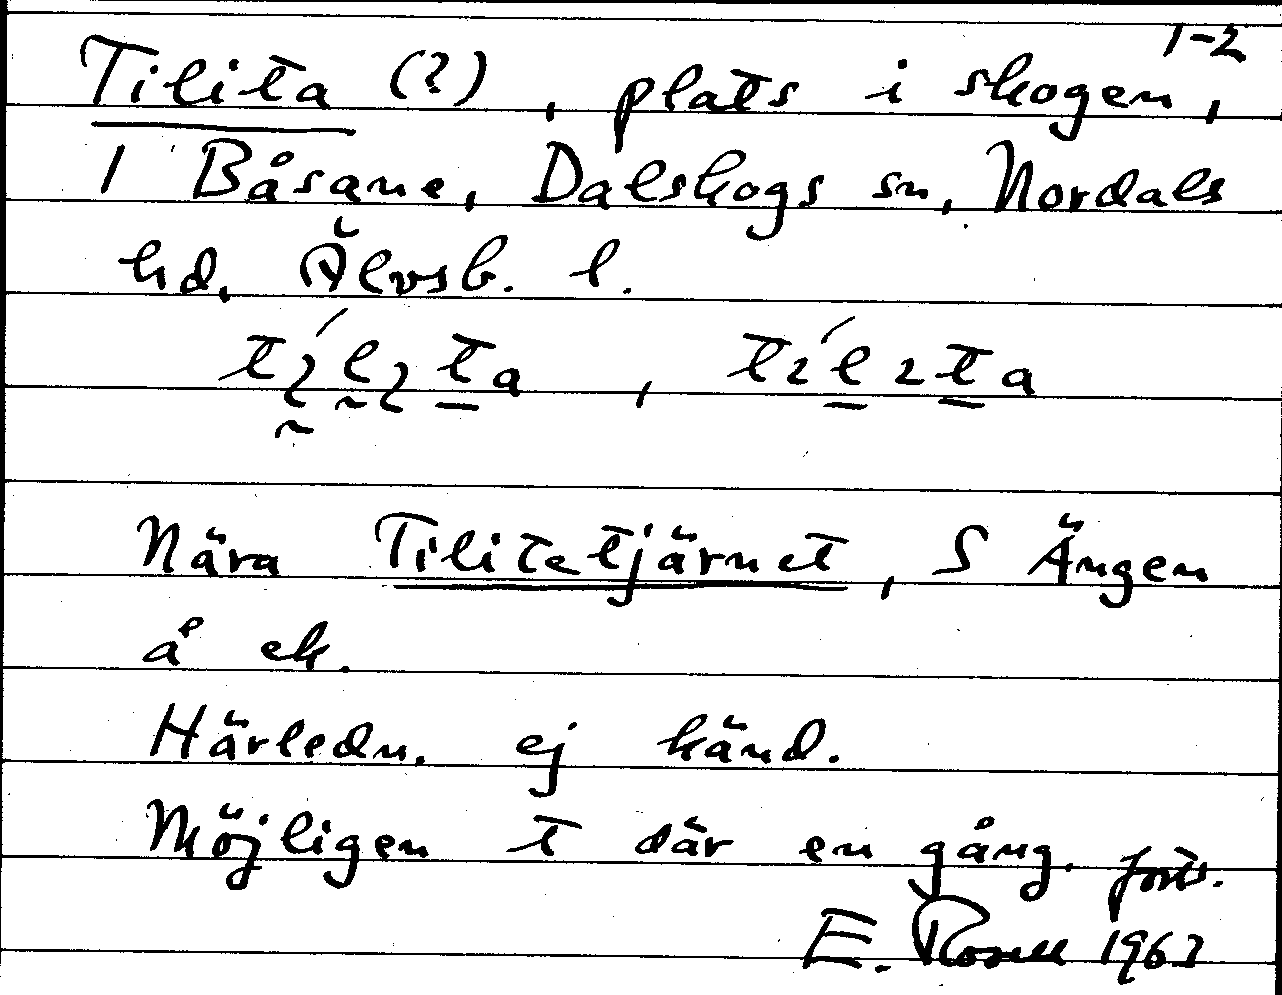 1-2
Tilita (?), plats i skogen,
1 Båsane, Dalskogs sn, Nordals
hd, Älvsb. l.
Nära Tilitetjärnet, S Ängen
å ek.
Härledn. ej känd.
Möjligen t där en gång. forts.
E. Rosell 1963